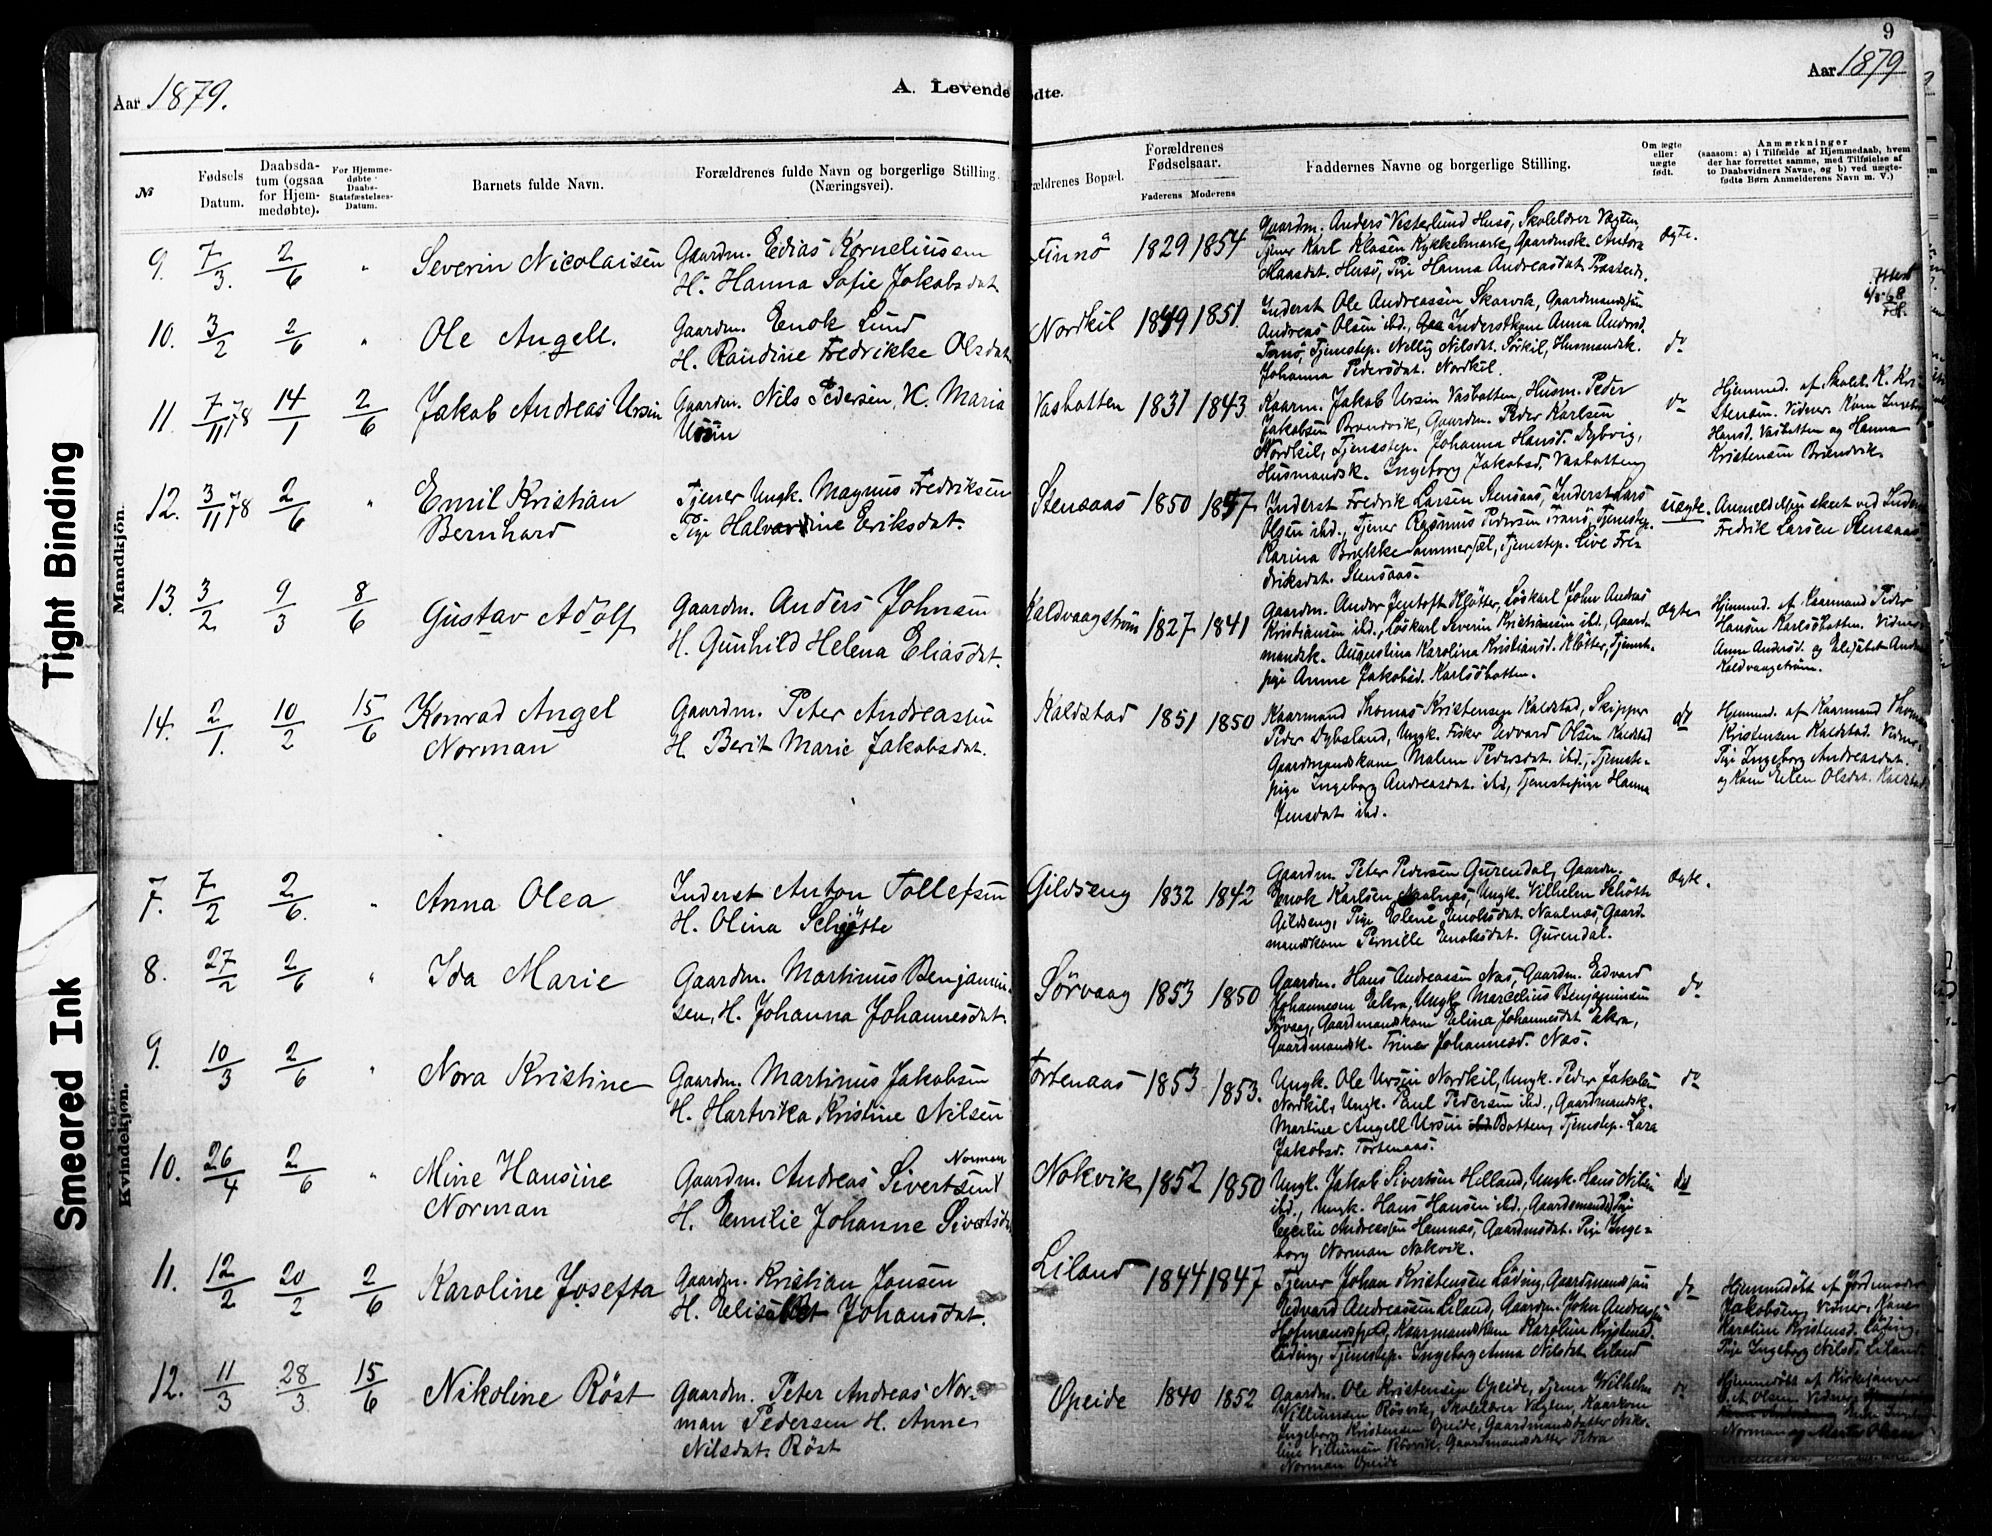 Tight Binding
Smeared Ink
9
Aar 1879.
A. Levende
ødte.
Aar 1879
№
Fødsels Datum.
Daabsda-
tum (ogsaa
for Hjem-
medøbte).
For Hjemme-
døbte
Daabs-
Statsfæstelses-
Datum.
Barnets fulde Navn.
Forældrenes fulde Navn og borgerlige Stilling.
(Næringsvei).
ældrenes Bopæl.
Forældrenes
Fødselsaar.
Faderens Moderens
Faddernes Navne og borgerlige Stilling.
Om ægte
eller
uægte
født.
Anmærkninger
(saasom: a) i Tilfælde af Hjemmedaab, hvem
der har forrettet samme, med Tilføielse af
to Daabsvidners Navne, og b) ved uægte-
fødte Børn Anmelderens Navn m. V.)
Mandkjøn.
9. 7/3. 2/6 " Severin Nicolaisen
Gaardm. Edias Korneliussen
H. Hanna Sofie Jakobsdat
Finnö 1829 1854
Gaardm. Anders Vesterlund Husö, Skolelærer Vagten,
Tjener Karl Klasen Kykkelmark, Gaardmsk. Antora
Maasdat. Husö, Pige Hanna Andreasdat.
Ægte.
10. 3/2 2/6 " Ole Angell.
Gaardm. Enok Lund
H. Randine Fredrikke Olsdat.
Nordkil 1849 1851.
Inderst Ole Andreassen Skarvik, Gaardmandssøn
Andreas Olsen ibd., Inderstkone Anna Andersd.
Tjenstep. Nelly Nilsdat. Sörkil, Husmandsk.
Johanna Pedersdat. Nordkil.
do
11. 7/11 78 14/1 2/6 Jakob Andreas Ursin
Gaardm. Nils Pedersen, K. Maria
Ursin
Vasbotten 1831 1843
Kaarm. Jakob Ursin Vasbotten, Husm. Peder
Jakobsen Brandvik, Gaardm. Peder Karlsen
Nordkil, Tjenestep. Johanna Hansd. Dybvig,
Husmandsk. Ingeborg Jakobsd. Vasbotten
do
Hjemmed. af Skolel. K. Kri-
stensen. Vidner. Kone Ingeborg
Hansd. Vasbotten og Hanna
Kristensen Brandvik.
12. 3/11 78 2/6 " Emil Kristian
Bernhard
Tjener Ungk. Magnus Fredriksen
Pige Halvardine Eriksdat.
Stensaas 1850 1847
Inderst Fredrik Larsen Stensaas, Inderst Lars
Olsen ibd., Tjener Rasmus Pedersen Tranö, Tjenstep.
Karina Brække Sommersæl, Tjenstep. Live Fre-
driksdat. Stensaas.
uægte
Anmeldelsen skeet ved Inderst
Fredrik Larsen Stensaas.
13. 3/2 9/3 8/6 Gustav Adolf
Gaardm. Anders Johnsen
H. Gunhild Helena Eliasdat.
Kaldvaagstrøm 1827 1841
Gaardm. Ander Jentoft Kløtter, Löskarl John Andreas
Kristiansen ibd., Löskarl Severin Kristiansen ibd., Gaard-
mandsk. Augustina Karolina Kristiansd. Kløtter, Tjenste-
pige Anne Jakobsd. Karlsöbotten.
Ægte
Hjemmed. af Kaarmand Peder
Hansen Karlsöbotten. Vidner,
Anne Andersd. og Elisabet Anders
Kaldvaagstrøm.
14. 2/1. 10/2 15/6 Konrad Angel
Norman
Gaardm. Peter Andreassen
H Berit Marie Jakobsdat.
Kaldstad 1851 1850
Kaarmand Thomas Kristensen Kaldstad, Skipper
Peder Dybsland, Ungk. Fisker Edvard Olsen Kaldstad
Gaardmandskone Malene Pedersdat. ibd., Tjeneste-
pige Ingeborg Andreasdat. ibd, Tjenstepige Hanna
Jensdat ibd.
do
Hjemmed. af Kaarmand Thomas
Kristensen Kaldstad. Vidner,
Pige Ingeborg Andreasdat.
og Kone Ellen Olsdat. Kaldstad
Kvindekjøn.
7. 7/2 2/6. " Anna Olea
Inderst Anton Tollefsen
H. Olina Schjötte
Gildseng 1832 1842
Gaardm. Peter Pedersen Gurendal, Gaardm.
Enok Karlsen Naalnæs, Ungk. Vilhelm Schötte
Gildseng, Pige Elene Enoksdat. Naalnæs, Gaard-
mandskone Pernille Enoksdat. Gurendal.
Ægte.
8. 27/2 2/6 " Ida Marie
Gaardm. Martinus Benjamin-
sen, H. Johanna Johannesdat.
Sørvaag 1853 1850
Gaardm. Hans Andreassen Næs, Gaardm. Edvard
Johannesen Elkra, Ungk. Marcelius Benjaminsen
Sørvaag, Gaardmandskone Elina Johannesdat Elkra,
Gaardmandsk. Trine Johannesd. Næs.
do
9. 10/3 2/6 " Nora Kristine
Gaardm. Martinus Jakobsen
H. Hartvika Kristine Nilsen
Tortenaas 1853 1853.
Ungk. Ole Ursin Nordkil, Ungk. Peder Jakobsen
Nordkil, Ungk. Paul Pedersen ibd., Gaardmandsk.
Martine Angell Ursin Botten, Tjenestep. Lara
Jakobsd. Tortenaas.
do
10. 26/4 2/6 " Mine Hansine
Norman
Gaardm. Andreas Sivertsen Norman
H. Emilie Johanne Sivertsdat
Nokvik 1852 1850
Ungk. Jakob Sivertsen Helland, Ungk. Hans Nilsen
ibd., Ungk. Hans Hansen ibd., Pige
Cecilie Andreassen Hamnæs, Gaardmsdat. Pige Inge-
borg Norman Nokvik.
do
11. 12/2 20/2 2/6 Karoline Josefta
Gaardm. Kristian Jonsen
H. Elisabet Johansdat.
Liland 1844 1847
Tjener Johan Kristensen Löding, Gaardmandssøn
Edvard Andreassen Liland, Gaardm. John Andreassen
Kaarmandskone Karoline Kristensd.
Löding, Tjenstep. Ingeborg Anna Nilsdat Liland
do
Hjemmedöbt af Jordemoder
Jakobsen, Vidner. Kone
Karoline Kristensd. Löding,
Pige Ingeborg Nilsd. Liland.
12. 11/3 28/3. 15/6 Nikoline Røst
Gaardm. Peter Andreas Nor-
man Pedersen H. Anne
Nilsdat. Röst
Opeide 1840 1852
Gaardm. Ole Kristensen Opeide, Tjener Wilhelm
Villumsen Rösvik, Skolelærer Vagten, Kaarkone
Ingeborg Kristensen Opeide, Gaardmandsdatter Niko-
line Villumsen Rösvik, Gaardmandsdatter Petra
Norman Opeide
do
Hjemmedöbt af Kirkesanger
Olsen Vidner
Norman og